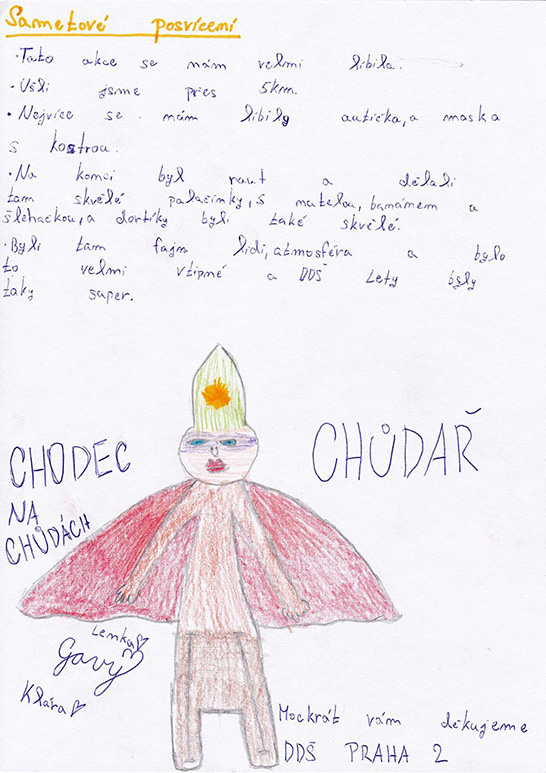 Sametové posvícení
• Tato akce se nám velmi líbila.
• Ušli jsme přes 5km.
• Nejvíce se nám líbily autíčka, a maska
s kostrou.
• Na konci byl raut a dělali
tam skvělé palačinky, s nutelou, banánem a
šlehačkou, a dortíky byli také skvělé.
• Byli tam fajn lidi, atmosféra a bylo
to velmi vtipné a DDŠ Lety byly
taky super.
CHODEC
NA
CHŮDÁCH
CHŮDAŘ
Lenka
Gavy
Klára
Mockrát vám děkujeme
DDŠ PRAHA 2